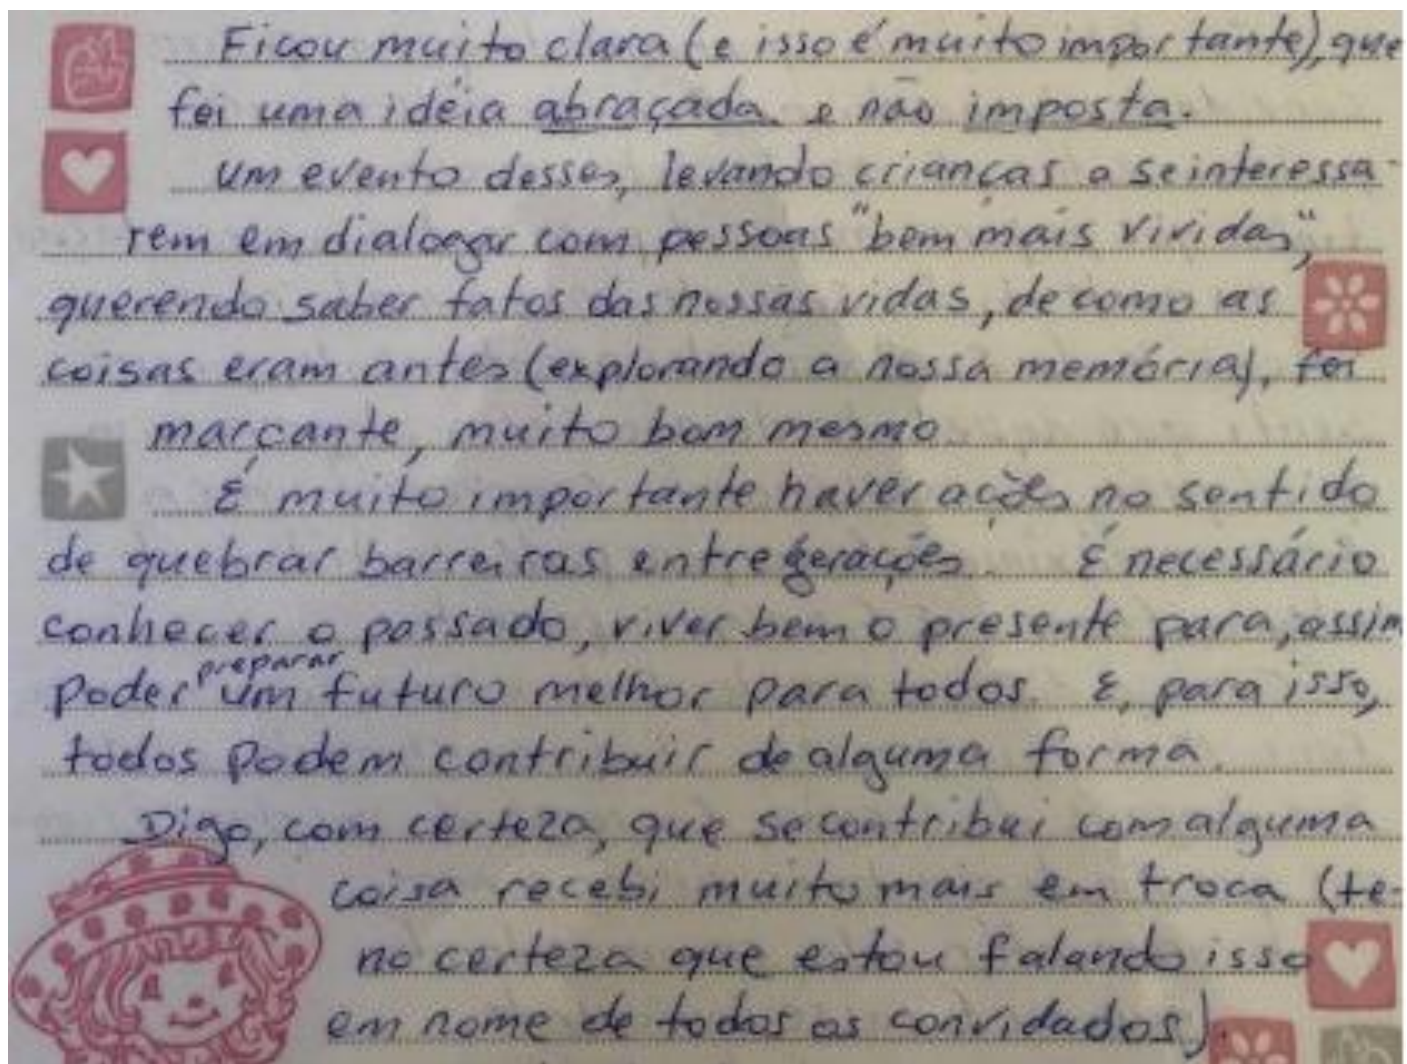 Ficou muito clara (e isso é muito importante), que
foi uma idéia abraçada e não imposta.
Um evento desses, levando crianças a se interessa-
rem em dialogar com pessoas "bem mais vividas",
querendo saber fatos das nossas vidas, de como as
coisas eram antes (explorando a nossa memória), foi
marcante, muito bom mesmo.
É muito importante haver ações no sentido
de quebrar barreiras entre gerações. É necessário
conhecer o passado, viver bem o presente para, assim
poder preparar um futuro melhor para todos. E, para isso,
todos podem contribuir de alguma forma.
Digo, com certeza, que se contribui com alguma
coisa recebi muito mais em troca (te-
no certeza que estou falando isso
em nome de todos os convidados).